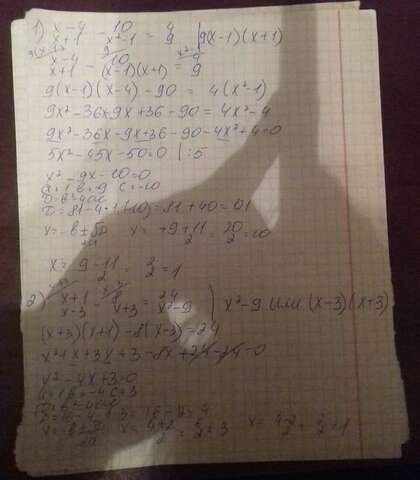 1) x-4/x+1 - 10/x²-1 = 4/9 | 9(x-1)(x+1)
x-4/x+1 - 10/(x-1)(x+1) = 4/9
9(x-1)(x-4)-90 = 4(x²-1)
9x²-36x-9x+36-90=4x²-4
9x²-36x-9x+36-90-4x²+4=0
5x²-45x-50=0 |:5
x²-9x-10=0
a=1 b=9 c=-10
D=b²-4ac
D=81-4·1·(-10)=81+40=121
x= x= +9+11/2 = 20/2=10
x= 9-11/2 = 2/2=1
2) x+1/x-3 - 8/x+3 = 24/x²-9 | x²-9 или (x-3)(x+3)
(x+3)(x+1)-8(x-3)-24
x²+x+3x+3-8x+24-24=0
x²-4x+3=0
a=1 b=-4 c=3
D=b²-4ac
x= 4+2/2 = x= 4-2/2 = 2/2=1